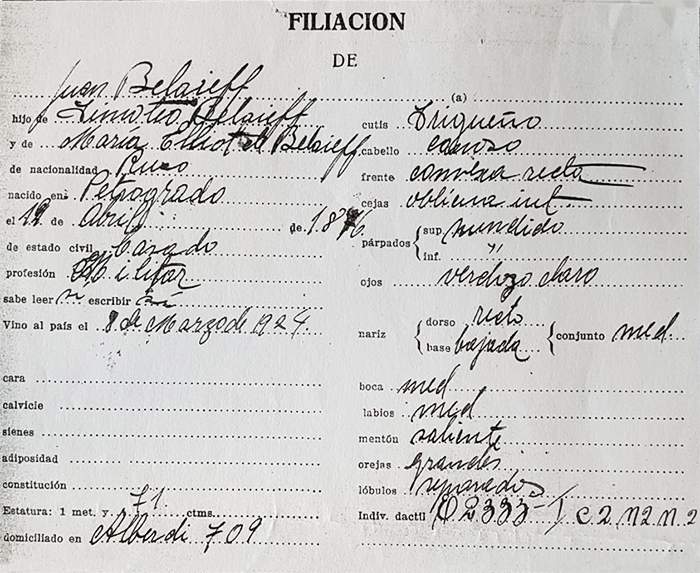 FILIACION
DE
Juan Belaieff
hijo de Timoteo Belaieff
y de María Elliot de Belaieff
de nacionalidad Ruso
nacido en Petrogrado
el 12 de Abril de 1876
de estado civil Casado
profesión Militar
sabe leer si escribir si
Vino al país el 8 de Marzo de 1924
cara
calvicie
sienes
adiposidad
constitución
Estatura: 1 met. y 71 ctms.
domiciliado en Alberdi 709
(a)
cutis Trigueño
cabello canoso
frente convexa recta
cejas oblicua int
párpados { sup. hundido
inf. "
ojos verdozo claro
nariz { dorso recto
base bajada { conjunto med
boca med
labios med
mentón saliente
orejas grandes
lóbulos separados
Indiv. dactil